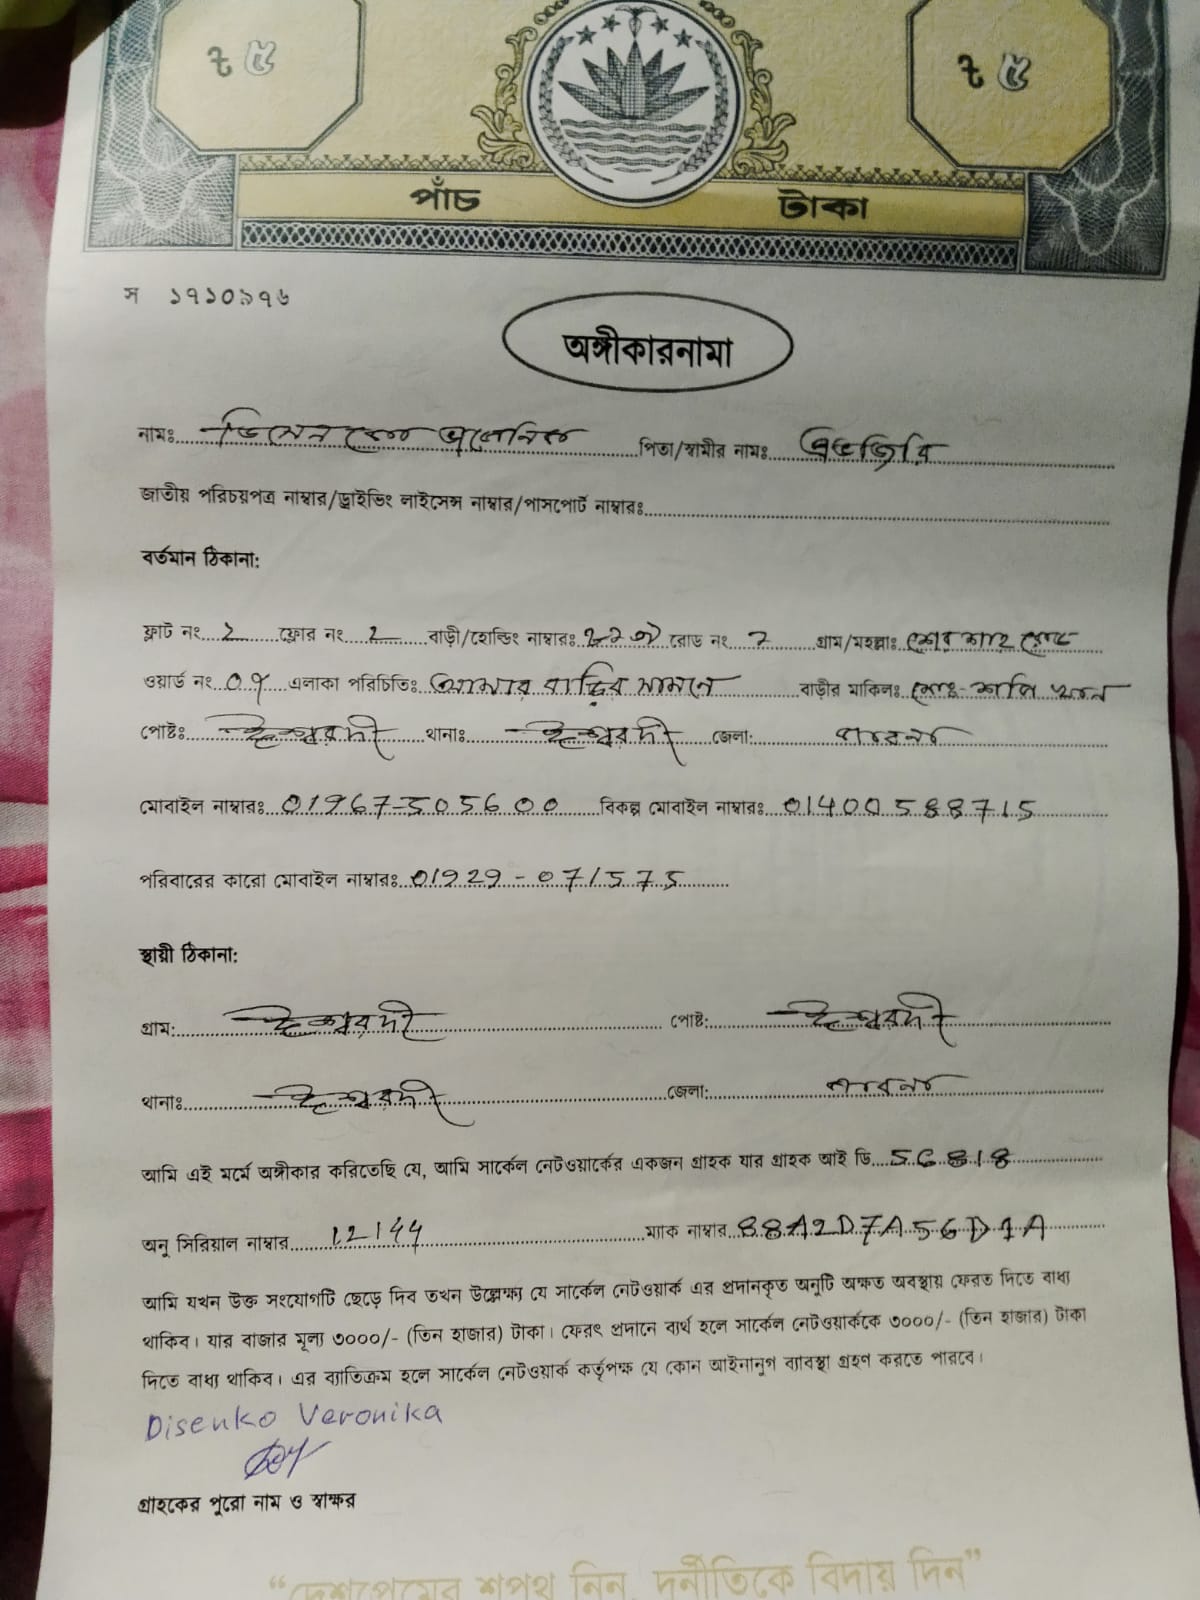 ৳ ৫ ৳ ৫
পাঁচ টাকা
স ১৭১০৯৭৬
অঙ্গীকারনামা
নামঃ ডিসেনকো ভেরোনিকা পিতা/স্বামীর নামঃ
জাতীয় পরিচয়পত্র নাম্বার/ড্রাইভিং লাইসেন্স নাম্বার/পাসপোর্ট নাম্বারঃ
বর্তমান ঠিকানা:
ফ্লাট নং ফ্লোর নং 2 বাড়ী/হোল্ডিং নাম্বারঃ রোড নং গ্রাম/মহল্লাঃ শের শাহ রোড
ওয়ার্ড নং এলাকা পরিচিতিঃ আমার বাড়ির সামনে বাড়ীর মাকিলঃ মোঃ-
পোষ্টঃ ঈশ্বরদী থানাঃ ঈশ্বরদী জেলা: পাবনা
মোবাইল নাম্বারঃ 01967-505600 বিকল্প মোবাইল নাম্বারঃ 01400588715
পরিবারের কারো মোবাইল নাম্বারঃ 01929-071575
স্থায়ী ঠিকানা:
গ্রাম: ঈশ্বরদী পোষ্ট: ঈশ্বরদী
থানাঃ ঈশ্বরদী জেলা: পাবনা
আমি এই মর্মে অঙ্গীকার করিতেছি যে, আমি সার্কেল নেটওয়ার্কের একজন গ্রাহক যার গ্রাহক আই ডি 56818
অনু সিরিয়াল নাম্বার 12144 ম্যাক নাম্বার 88A2D7A56D1A
আমি যখন উক্ত সংযোগটি ছেড়ে দিব তখন উল্লেক্ষ্য যে সার্কেল নেটওয়ার্ক এর প্রদানকৃত অনুটি অক্ষত অবস্থায় ফেরত দিতে বাধ্য
থাকিব। যার বাজার মূল্য ৩০০০/- (তিন হাজার) টাকা। ফেরৎ প্রদানে ব্যর্থ হলে সার্কেল নেটওয়ার্ককে ৩০০০/- (তিন হাজার) টাকা
দিতে বাধ্য থাকিব। এর ব্যাতিক্রম হলে সার্কেল নেটওয়ার্ক কর্তৃপক্ষ যে কোন আইনানুগ ব্যাবস্থা গ্রহণ করতে পারবে।
Disenko Veronika
গ্রাহকের পুরো নাম ও স্বাক্ষর
“দেশপ্রেমের শপথ নিন, দুর্নীতিকে বিদায় দিন”